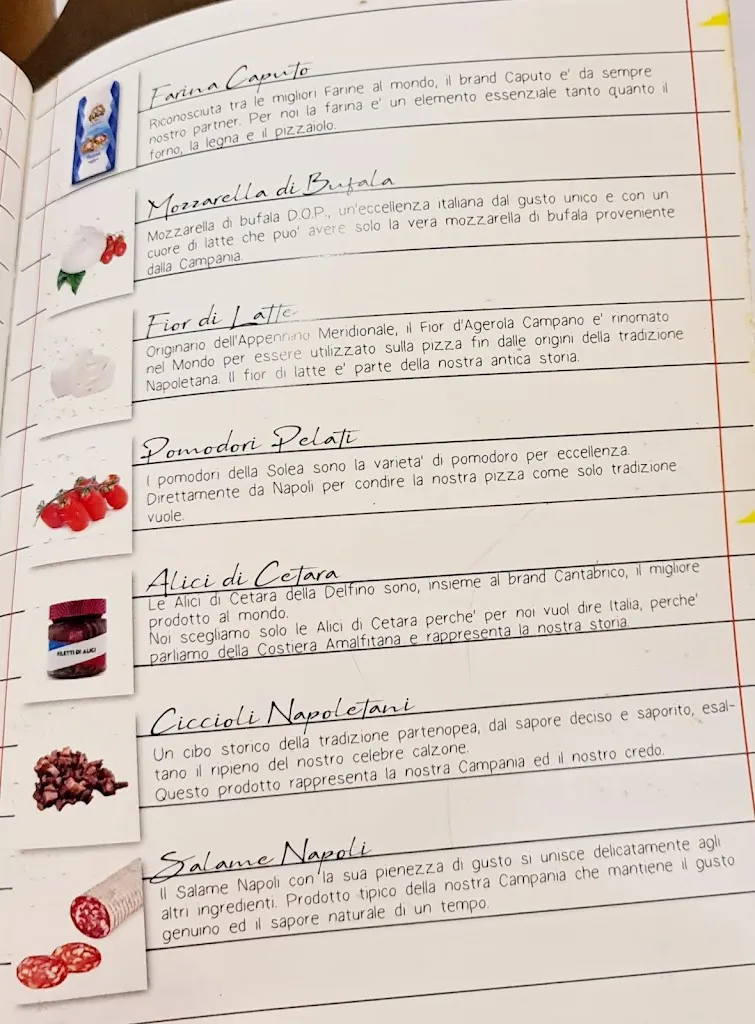 Farina Caputo
Riconosciuta tra le migliori Farine al mondo, il brand Caputo e' da sempre
nostro partner. Per noi la farina e' un elemento essenziale tanto quanto il
forno, la legna e il pizzaiolo.
Mozzarella di Bufala
Mozzarella di bufala D.O.P., un'eccellenza italiana dal gusto unico e con un
cuore di latte che puo' avere solo la vera mozzarella di bufala proveniente
dalla Campania.
Fior di Latte
Originario dell'Appennino Meridionale, il Fior d'Agerola Campano e' rinomato
nel Mondo per essere utilizzato sulla pizza fin dalle origini della tradizione
Napoletana. Il fior di latte e' parte della nostra antica storia.
Pomodori Pelati
I pomodori della Solea sono la varieta' di pomodoro per eccellenza.
Direttamente da Napoli per condire la nostra pizza come solo tradizione
vuole.
Alici di Cetara
Le Alici di Cetara della Delfino sono, insieme al brand Cantabrico, il migliore
prodotto al mondo.
Noi scegliamo solo le Alici di Cetara perche' per noi vuol dire Italia, perche'
parliamo della Costiera Amalfitana e rappresenta la nostra storia.
FILETTI DI ALICI
Ciccioli Napoletani
Un cibo storico della tradizione partenopea, dal sapore deciso e saporito, esal-
tano il ripieno del nostro celebre calzone.
Questo prodotto rappresenta la nostra Campania ed il nostro credo.
Salame Napoli
Il Salame Napoli con la sua pienezza di gusto si unisce delicatamente agli
altri ingredienti. Prodotto tipico della nostra Campania che mantiene il gusto
genuino ed il sapore naturale di un tempo.